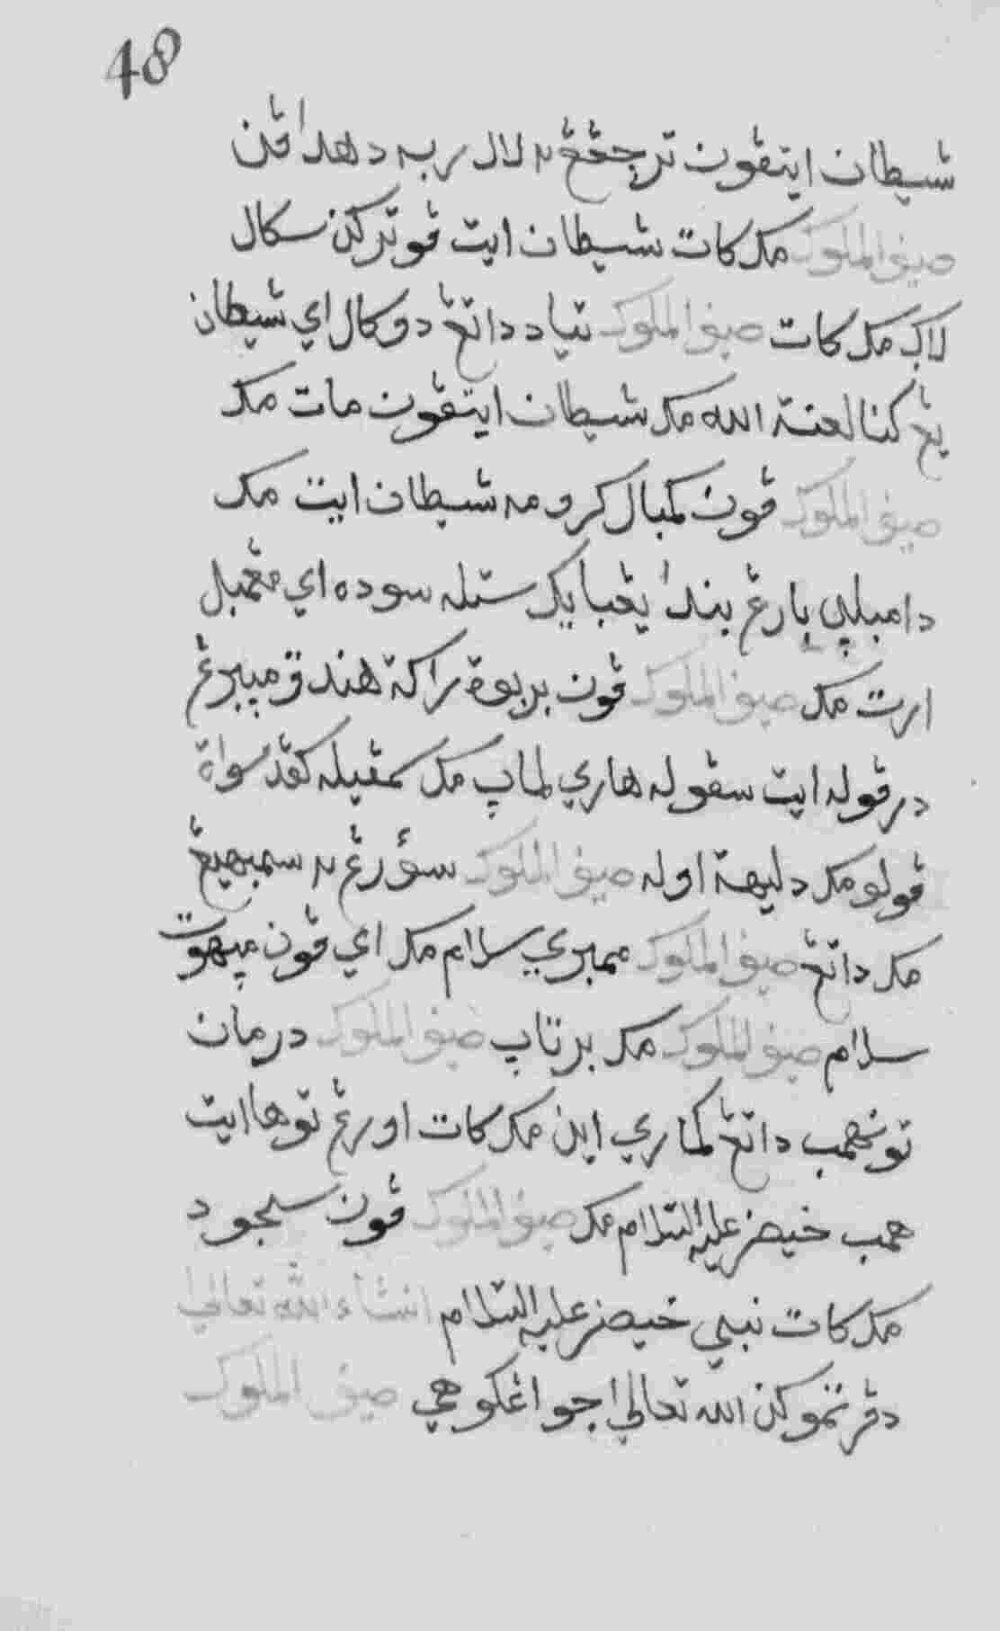 48
شيطان ايتڤون ترجڠڠ لالو ربه دهداڤن
صيف الملوك مک کات شيطان ايت ڤوترکن سکال
لاݢ مک کات صيف الملوك تياد داتڠ دو کال اي شيطان
يڠ کنا لعنة الله مک شيطان ايتڤون مات مک
صيف الملوك ڤون کمبال کرومه شيطان ايت مک
دامبلڽ بارڠ بندا يڠبايک ستله سوده اي مڠمبل
ارت مک صيف الملوك ڤون بربوة راکة هندق ميبرڠ
درڤوله ايت سڤوله هاري لماڽ مک سمڤيله کڤد سواة
ڤولو مک دليهة اوله صيف الملوك سؤرڠ سمبهيڠ
مک داتڠ صيف الملوك ممبري سلام مک اي ڤون ميهوت
سلام صيف الملوك مک برتاڽ صيف الملوك درمان
تونهمب داتڠ کماري اين مک کات اورڠ توها ايت
همب خيضر عليه السلام مک صيف الملوك ڤون سجود
مک کات نبي خيضر عليه السلام انشاء الله تعالى
دڤرتموکن الله تعالى جوا اڠکو هي صيف الملوك